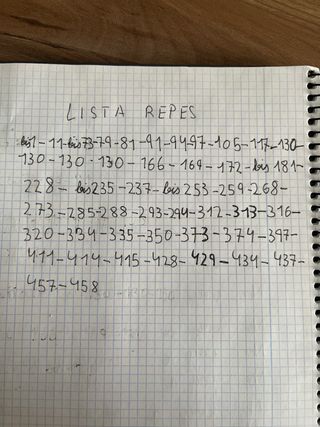 LISTA REPES
bis1-11-bis73-79-81-91-94-97-105-117-130-
130-130-130-166-169-172-bis181-
228-bis235-237-bis253-259-268-
273-285-288-293-294-312-313-316-
320-334-335-350-373-374-397-
411-414-415-428-429-434-437-
457-458